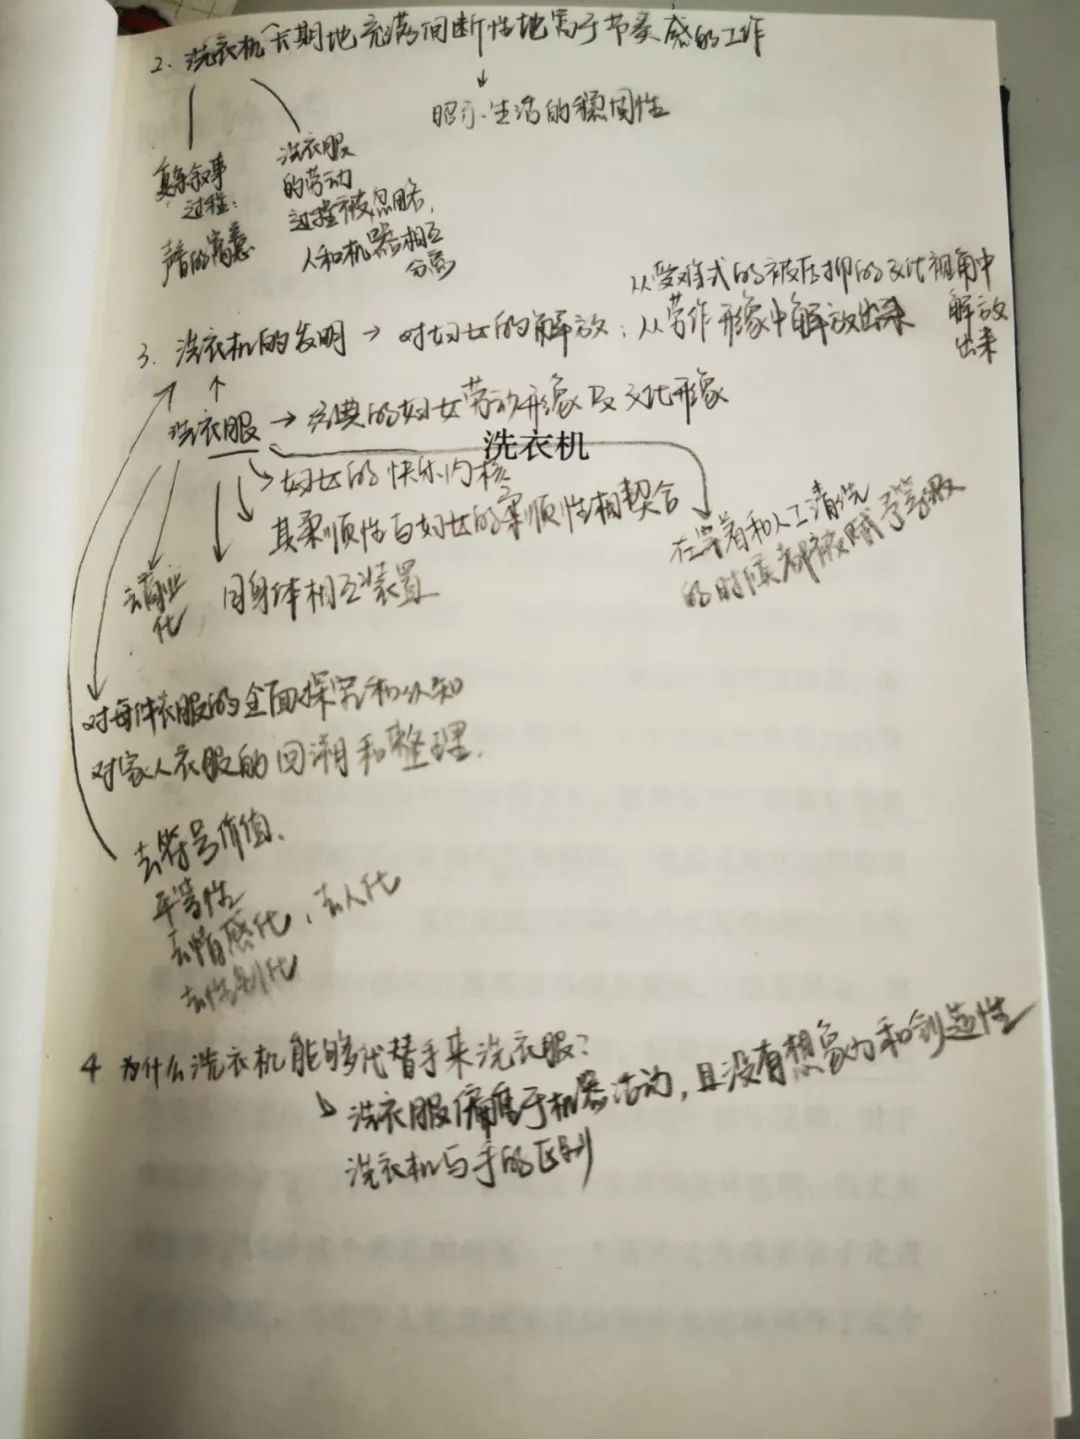 2、洗衣机长期地充满间断性地富于节奏感的工作
昭示生活的稳固性
复杂叙事
过程：
声音的寓意
洗衣服
的劳动
过程被忽略，
人和机器相互
分离
从受难式的被压抑的文化视角中
解放
出来
3、洗衣机的发明→对妇女的解放：从劳作形象中解放出来
洗衣服→经典的妇女劳动形象及文化形象
洗衣机
妇女的快乐内核
其柔顺性与妇女的柔顺性相契合
在穿着和人工清洗
的时候都被赋予等级
去商业
化
同身体相互装置
对每件衣服的全面探究和认知
对家人衣服的回溯和整理.
去符号价值、
平等性
去情感化，去人化
去性别化
4 为什么洗衣机能够代替手来洗衣服？
洗衣服偏属于机器活动，且没有想象力和创造性
洗衣机与手的区别